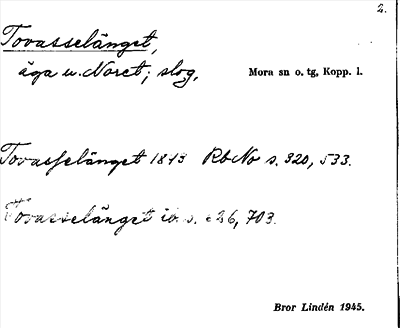 2.
Tovasselänget,
äga u. Noret; slog,
Mora sn o. tg, Kopp. l.
Tovasselänget 1813 RbNo s. 320, 533.
Tovasselänget ib. s. 26, 703.
Bror Lindén 1945.